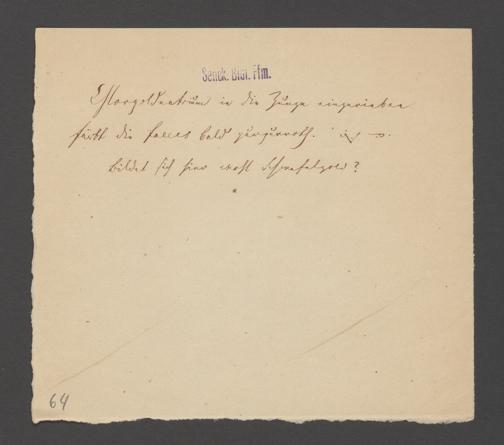 Senck. Bibl. Ffm.
Chlorgoldnatrium in die Zunge eingerieben
färbt die bald purpurroth.
Bildet sich hier wohl Schwefelgold?
64